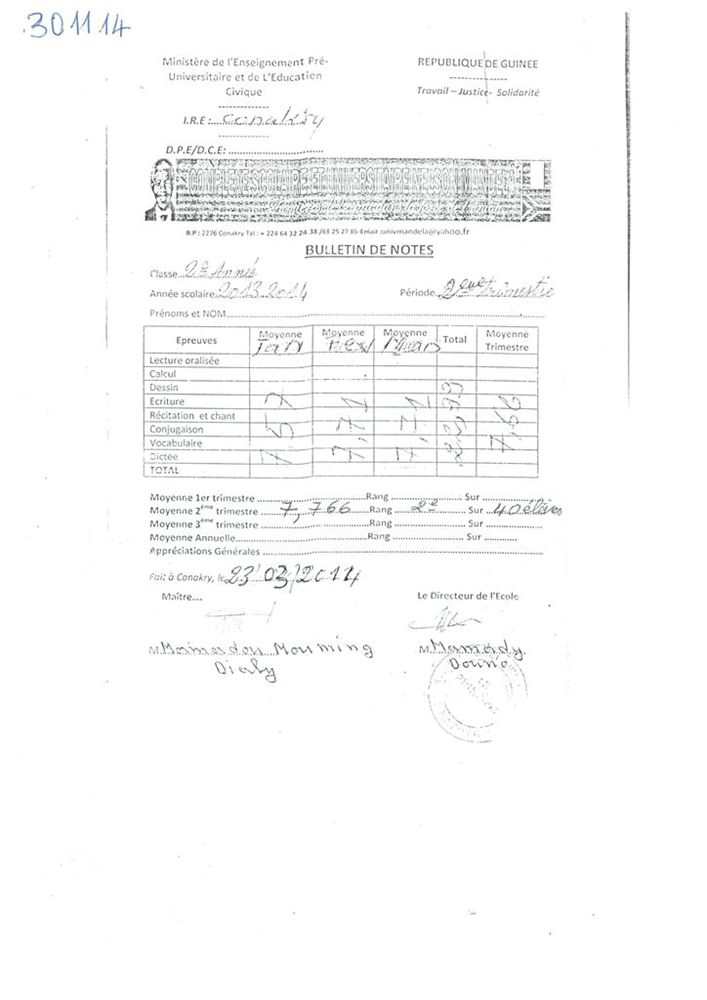 301114
Ministère de l'Enseignement Pré-
Universitaire et de L'Education
Civique
REPUBLIQUE DE GUINEE
Travail – Justice- Solidarité
I.R.E:.... Conakry
D.P.E/D.C.E:
COMPLEXE SCOLAIRE ET UNIVERSITAIRE NELSON MANDELA
B.P : 2276 Conakry Tel : + 224 64 32 24 38 /68 25 27 85-Email :univmandela@yahoo.fr
BULLETIN DE NOTES
Classe 2e Année
Année scolaire 2013.2014
Période 2eme trimestre
Prénoms et NOM
Epreuves Moyenne Jan Moyenne Fev Moyenne Mars Total Moyenne Trimestre
Lecture oralisée
Calcul
Dessin
Ecriture
Récitation et chant
Conjugaison
Vocabulaire
Dictée
TOTAL
7,57 7,71 7,71
Moyenne 1er trimestre Rang Sur
Moyenne 2ème trimestre 7,766 Rang 2e Sur 40 élèves
Moyenne 3ème trimestre Rang Sur
Moyenne Annuelle Rang Sur
Appréciations Générales
Fait à Conakry, le 23/03/2014
Maître....
Le Directeur de l'Ecole
Mamadou Mouming
Dialy
Mamady